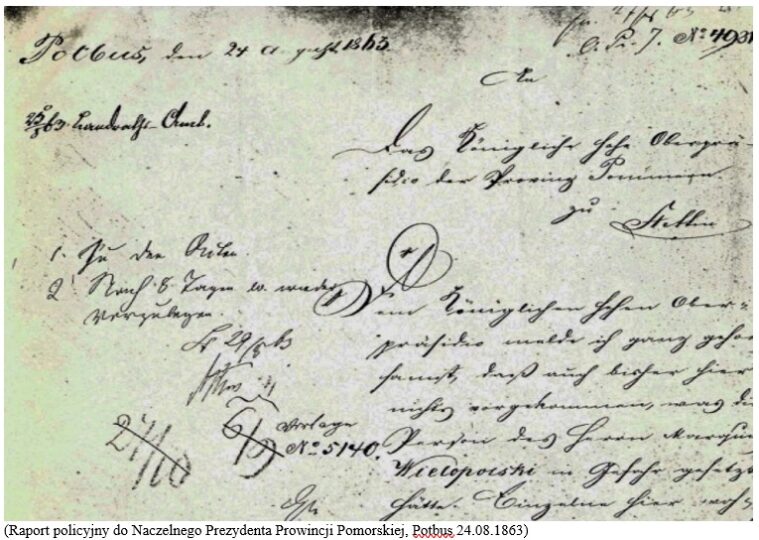 Potbus, den 24 August 1863.
O. Pr. J. No 493
An
Landraths-Amt.
Das Königliche hohe Oberprä-
sidio der Provinz Pommern
zu
Stettin
1. Zu den Acten.
2. Nach 8 Tagen w. wieder
vorzulegen
29/8 63
Dem Königlichen hohen Ober-
präsidio melde ich ganz gehor
samst, daß auch bisher hier
nichts vorgekommen, was di
Person des Herrn Marqui
Wielopolski in Gefahr gesetzt
hätte. Einzelne hier
6/9
Vorlage
No 5140.
27/10
(Raport policyjny do Naczelnego Prezydenta Prowincji Pomorskiej, Potbus 24.08.1863)